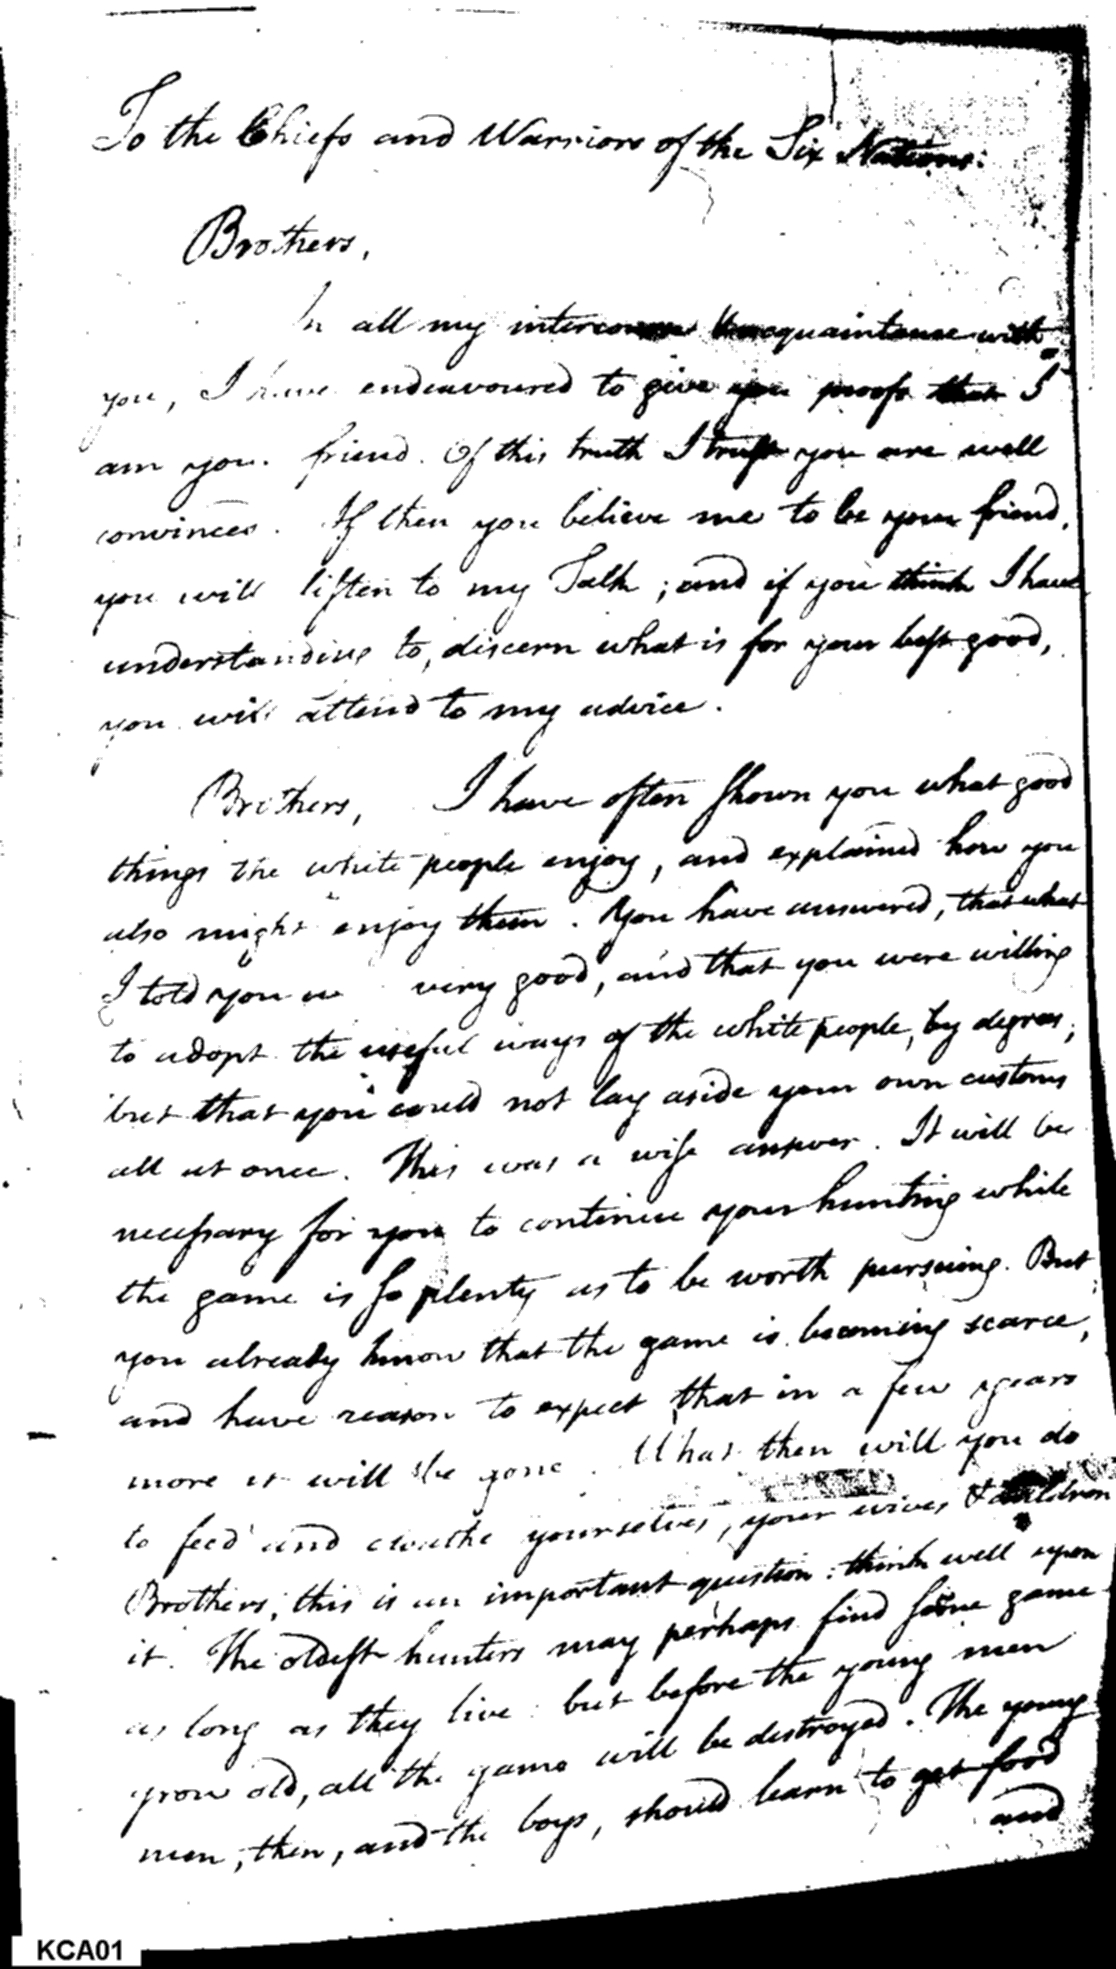 To the Chiefs and Warriors of the Six Nations:
Brothers,
In all my intercourse & acquaintance with
you, I have endeavoured to give you proofs that I
am your friend. Of this truth I trust you are well
convinced. If then you believe me to be your friend,
you will listen to my Talk; and if you think I have
understanding to discern what is for your best good,
you will attend to my advice.
Brothers, I have often shown you what good
things the white people enjoy, and explained how you
also might enjoy them. You have answered, that what
I told you was very good, and that you were willing
to adopt the useful ways of the white people, by degrees;
but that you could not lay aside your own customs
all at once. This was a wise answer. It will be
necessary for you to continue your hunting while
the game is so plenty as to be worth pursuing. But
you already know that the game is becoming scarce,
and have reason to expect that in a few years
more it will be gone. What then will you do
to feed and cloathe yourselves, your wives & children
Brothers, this is an important question: think well upon
it. The oldest hunters may perhaps find some game
as long as they live: but before the young men
grow old, all the game will be destroyed. The young
men, then, and the boys, should learn to get food
and
KCA01